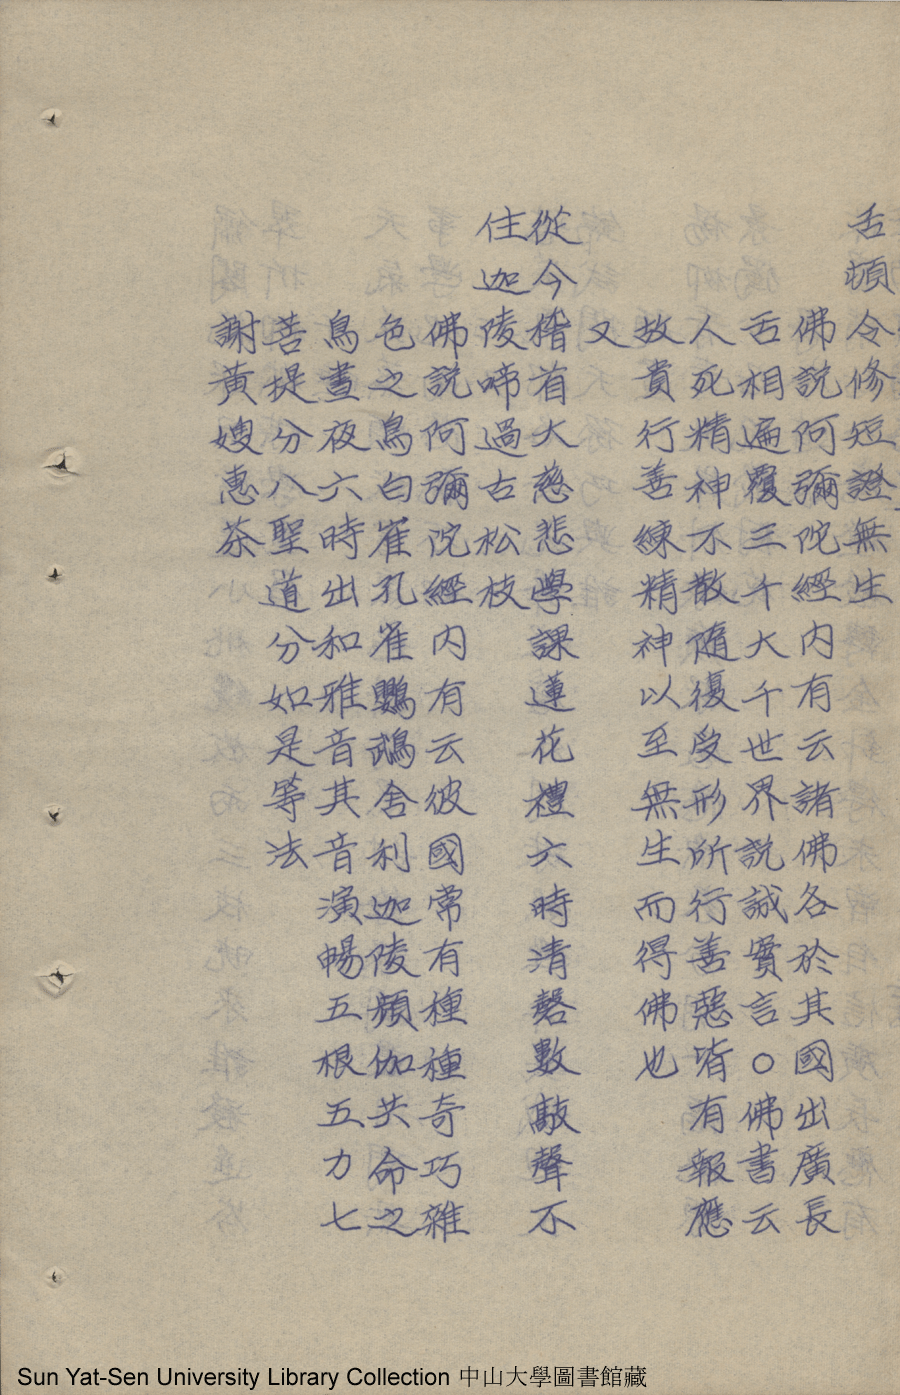 舌頓令修短證無生
佛說阿彌陀經内有云諸佛各於其國出廣長
舌相遍覆三千大千世界説誠實言○佛書云
人死精神不散隨復受形所行善惡皆有報應
故貴行善練精神以至無生而得佛也
又
從今稽首大慈悲學課蓮花禮六時清磬數敲聲不
住迦陵啼過古松枝
佛說阿彌陀經内有云彼國常有種種奇巧雜
色之鳥白雀孔雀鸚鵡舍利迦陵頻伽共命之
鳥晝夜六時出和雅音其音演暢五根五力七
菩提分八聖道分如是等法
謝黃嫂惠茶
Sun Yat-Sen University Library Collection 中山大學圖書館藏